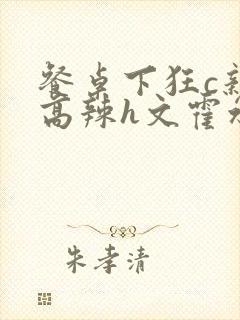 餐桌下狂c新
高辣h文霍水
朱孝清